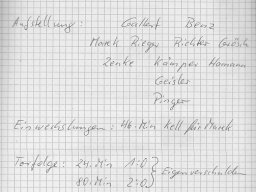 Aufstellung: Galbert Benz
Marek Rieger Richter Grösch
Zenke Kämper Homann
Geisler
Pinger
Einwechslungen: 46. Min Kell für Marek
Torfolge: 24. Min 1:0 } Eigenverschulden
80. Min 2:0